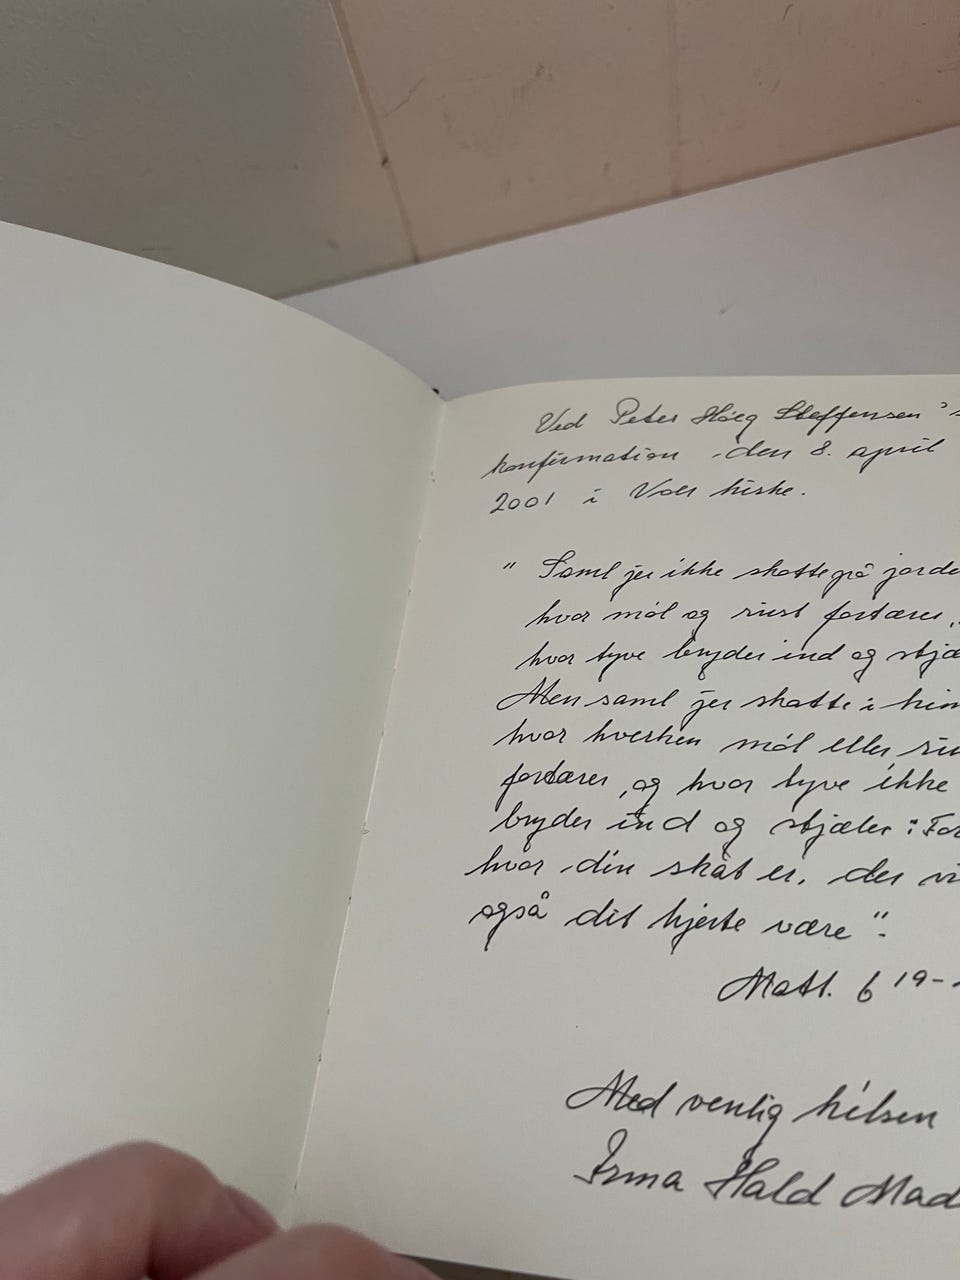 Ved Peter Høeg Steffensen's
konfirmation den 8. april
2001 i Voer kirke.
" Saml jer ikke skatte på jorde
hvor møl og rust fortærer,
hvor tyve bryder ind og stjæ
Men saml jer skatte i him
hvor hverken møl eller ru
fortærer, og hvor tyve ikke
bryder ind og stjæler: For
hvor din skat er, der vi
også dit hjerte være".
Matt. 6 19-
Med venlig hilsen
Irma Hald Mad